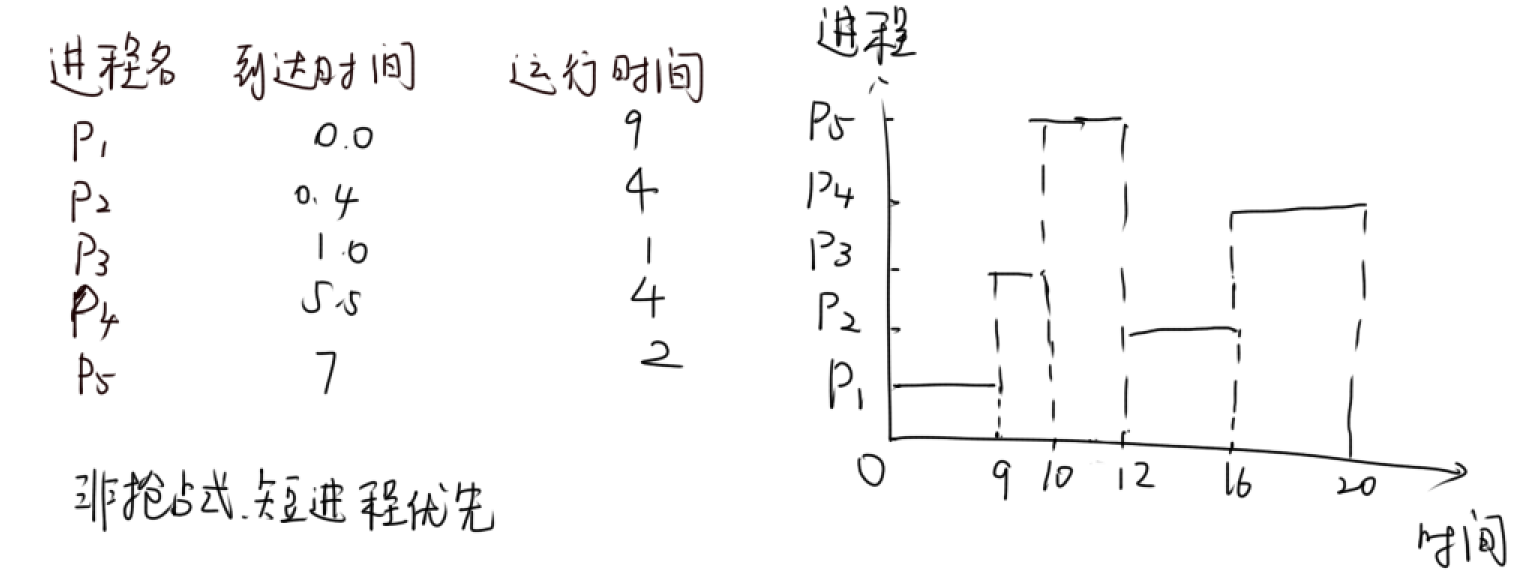 进程名 到达时间 运行时间
P1 0.0 9
P2 0.4 4
P3 1.0 1
P4 5.5 4
P5 7 2
非抢占式.短进程优先
进程
P5
P4
P3
P2
P1
0 9 10 12 16 20
时间